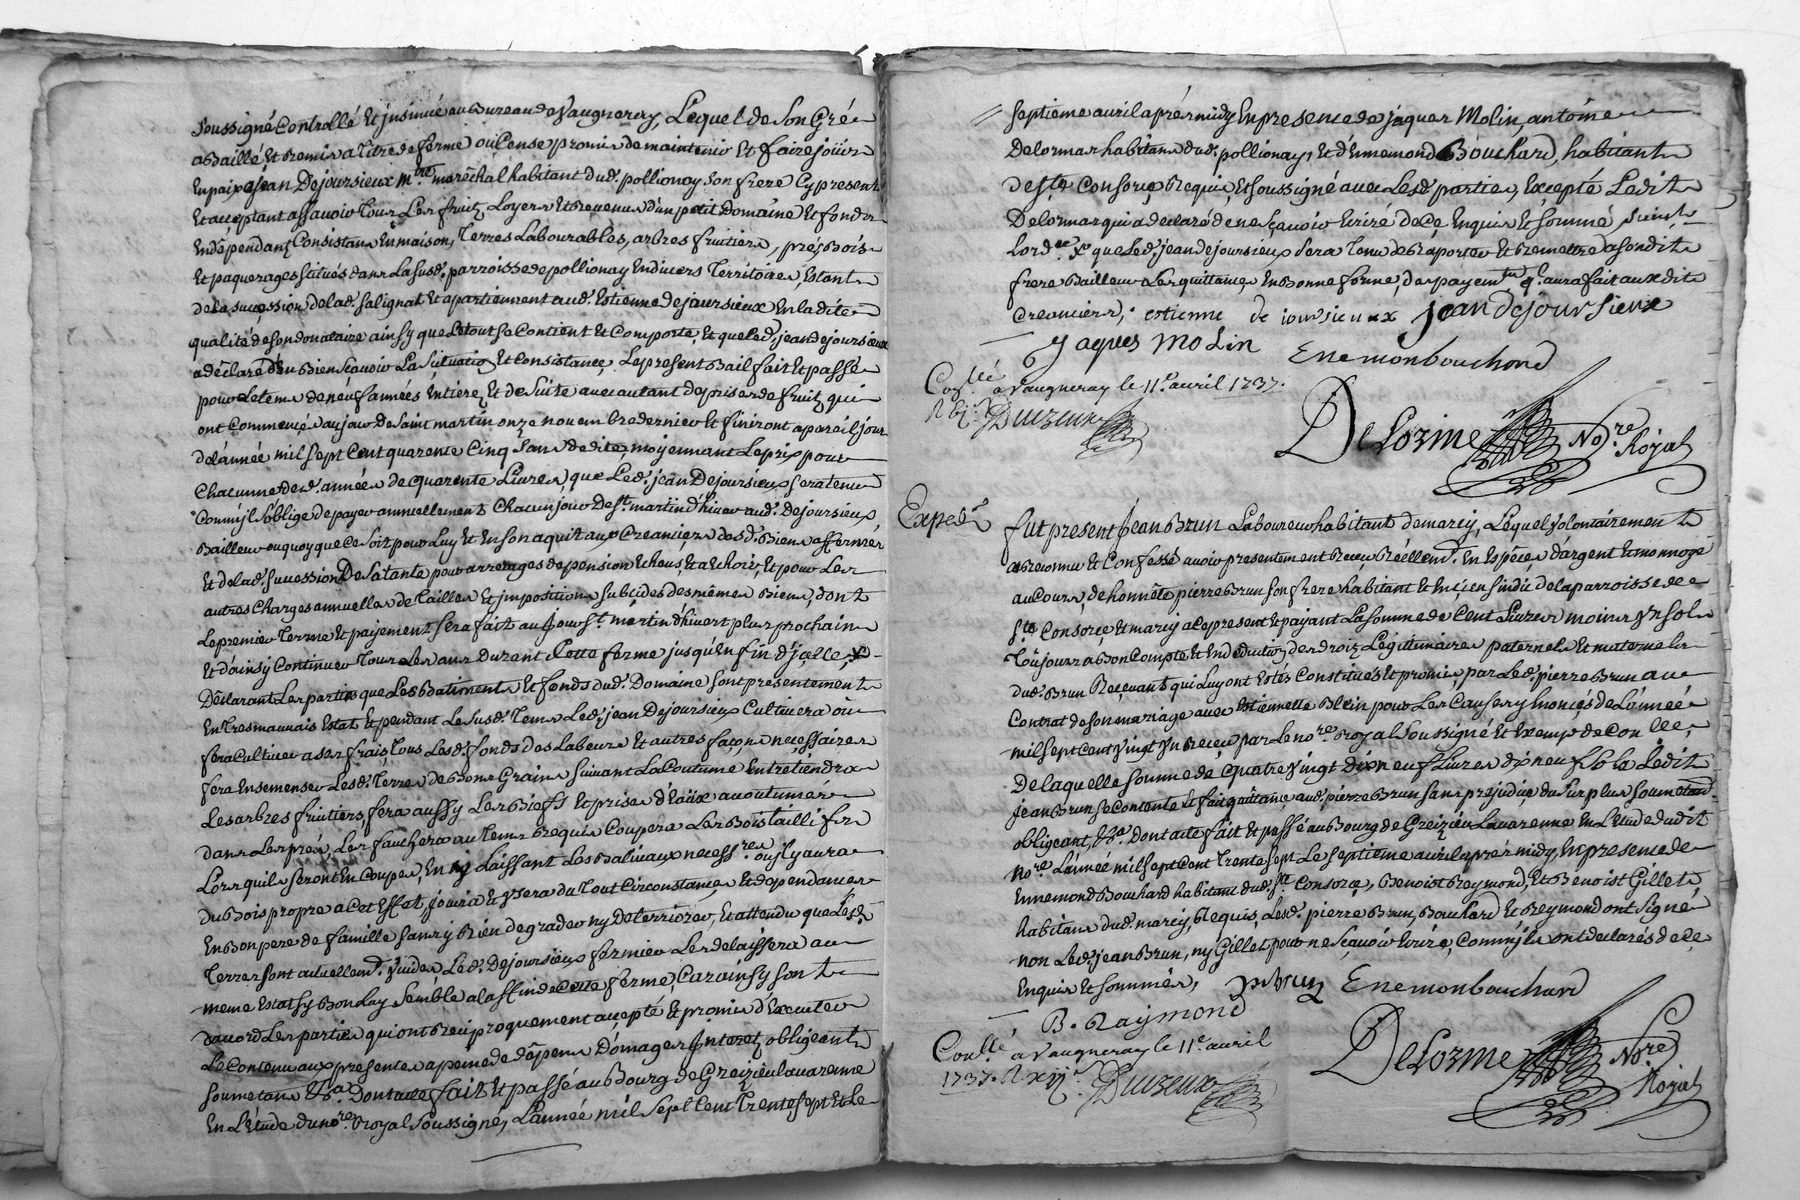 soussigné Controllé et jnsinué au Bureau de Vaugneray, Lequel de son Gré
a Baillé et Remis a titre de ferme ou Cense promis de maintenir et faire joüir
En paix, a jean Dejoursieux m.tre maréchal habitant dud. pollionay son frere Cy present
Et acceptant assavoir tous Les fruitz, Loyers et Revenus d'un petit Domaine et fonds
En dépendantz Consistans En maison, Terres Labourables, arbres fruitiers, prés, Bois
Et paquerages scitués dans La susd. parroisse de pollionay En divers Territoires, Estants
de la succession de lad. salignat et apartiennent aud. Estienne dejoursieux En la dite
qualité de son donataire ainsy que Le tout se Contient et Comporte, et que led. jean dejoursieux
a déclaré Bien sçavoir La situation et Consistance Le present Bail fait et passé
pour Le tems de neuf années Entières et de suite avec autant de prises de fruitz qui
ont Commencés au jour de Saint martin onze novembre dernier et finiront a pareil jour
de L'année mil sept Cent quarente Cinq sans dedite, moyennant Le prix pour
Chacune desd. années de quarente Livres, que Led. jean Dejoursieux sera tenu
Comm'jl s'oblige de payer annuellement Chacun jour de St. martin d'hiver aud. Dejoursieux
Bailleur ou quoy que Ce soit pour Luy et En son aquit aux Creanciers desd. Biens affermés
Et de lad. succession De sa tante pour arrerages de pension Echeus, et a Echoir, Et pour Les
autres Charges annuelles de Tailles et jmpositions subcides des mêmes Biens, dont
Le premier Terme et payement sera fait au jour St. martin d'hivert plus prochain
Et d'ainsy Continuer Tous Les ans Durant Cette ferme jusqu'En fin d'jcelle,
Déclarant Les parties que Les Batiments et fonds dud. Domaine sont presentement
En tres mauvais Estat, et pendant Le susd. Tems Led. jean Dejoursieux Cultivera ou
fera Cultiver a ses frais tous Lesd. fonds des Labeurs et autres façons necessaires
fera Ensemenser Lesd. Terres de Bons Grains suivant La Coutume Entretiendra
Les arbres fruitiers fera aussy Les Biefs et prises d'Eaüx accoutumer
dans Les prés, Les fauchera au Tems Requis Coupera Les Bois taillifs
Lors quils seront En Coupe, En y Laissant Les Balivaux necess.res ou jl y aura
du Bois propre a Cet Effet, joüira et Vsera du tout Circonstances et dépendances
En Bon pere de famille sans y Rien degrader ny Deterriorer, et attendu que Lesd.
Terres sont actuellemt. Vuides Led. Dejoursieux fermier Les delaissera au
meme Estat sy Bon Luy semble a la fin de Cette ferme, Car ainsy sont
d'accord Les parties qui ont Reciproquement accepté et promis d'Executer
Le Contenu aux presentes a peine de dépens D'omages jnteretz obligeants
soumetans &a. Dont acte fait et passé au Bourg de Greizieu Lavarenne
En L'Etude du no.re Royal soussigné, L'année mil sept Cent Trente sept et Le
septieme avril après midy En presence de jaques Molin, antoine
Delormas habitans dud. pollionay, et d'Ennemond Bouchard, habitant
de Ste. Consorce, Requis, et soussigné avec Lesd. parties, Excepté Ledit
Delormas qui a declaré de ne sçavoir Ecrire de Ce Enquis et sommé, suiv.t
Lord.ce que Led. jean dejoursieux sera tenu de Raporter et Remettre a son dit
frere Bailleur Les quittances En Bonne forme, des payemts. ql. aura fait aux dits
Creanciers, estienne de joursieux jean dejoursieux
Jaques Molin Enemonbouchard
Con.llé a Vaugneray le 11e. avril 1737.
Duizeux
Delorme No.re Royal
Exped.
fut present Jean Brun Laboureur habitant de marcy, Lequel Volontairement
a Reconnu et Confessé avoir presentement Receu Réellemt. En Espèces d'argent et monnoye
au Cours, de honnête pierre Brun son frere habitant et ancien sindic de la parroisse de
Ste. Consorce et marcy a Ce present et payant La somme de Cent Livres moins Vn sol
Toujours a Bon Compte et En deduction des droitz Légitimaires paternels et maternels
dud. Brun Recevant qui Luy ont Estés Constitués et promis par Led. pierre Brun au
Contrat de son mariage avec Estiennette Blein pour Les Causes y Enoncés de L'année
mil sept Cent Vingt Vn Receu par Le no.re Royal soussigné et
De laquelle somme de quatre Vingt Dix neuf Livres dix neuf sols Ledit
jean Brun se Contente et fait quitance aud. pierre Brun sans prejudice du surplus soumetant
obligeant, &a. Dont acte fait et passé au Bourg de Greizieu Lavarenne En L'Etude dudit
No.re L'année mil sept Cent Trente sept Le septieme avril après midy, En presence de
Ennemond Bouchard habitant dud. Ste. Consorce, Benoist Reymond, et Benoist Gillet
habitans dud. marcy, Requis, Lesd. pierre Brun, Bouchard et Reymond ont signé
non Led. jean Brun, ny Gillet pour ne sçavoir Ecrire, Comm'jls ont declarés de Ce
Enquis et sommés, p brun Enemonbouchard
B. Raymond
Con.llé a Vaugneray le 11e. avril
1737. R. xij s.
Duizeux
Delorme No.re Royal